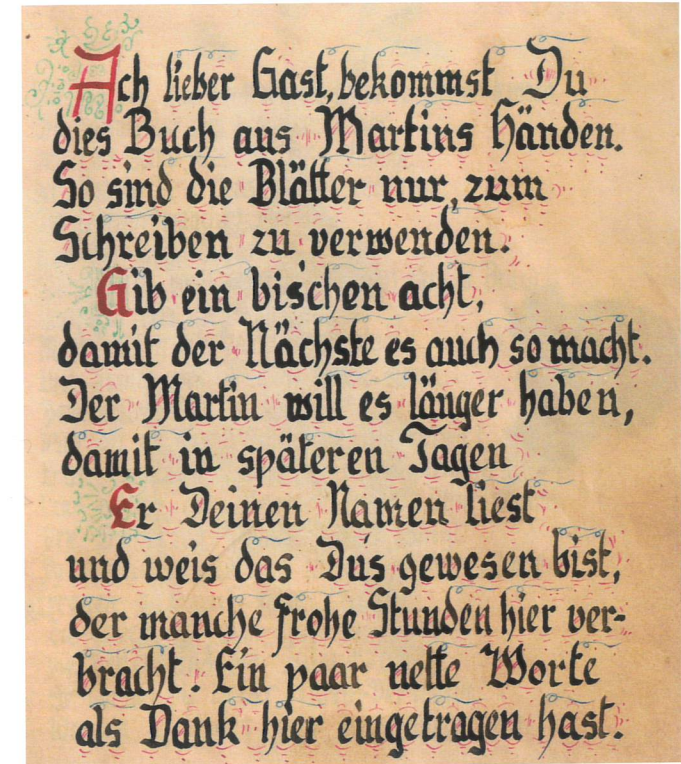 Ach lieber Gast, bekommst Du
dies Buch aus Martins Händen.
So sind die Blätter nur, zum
Schreiben zu verwenden.
Gib ein bischen acht,
damit der Nächste es auch so macht.
Der Martin will es länger haben,
damit in späteren Tagen
Er Deinen Namen liest
und weis das Dus gewesen bist,
der manche frohe Stunden hier ver-
bracht. Ein paar nette Worte
als Dank hier eingetragen hast.